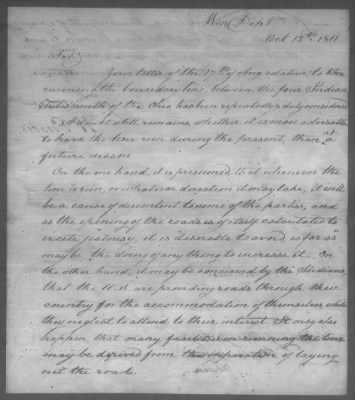 War Dept.
Oct 12th 1811
Sir,
Your letter of the 17th of Aug. relative to the
running the boundary line between the four Indian
Tribes south of the Ohio has been repeatedly & duly considered
A doubt still remains, whether it is most adviseable
to have the line run during the present, than at a
future season.
On the one hand, it is presumed, that whenever the
line is run, or whatever direction it may take, it will
be a cause of discontent to some of the parties, and
as the opening of the roads is of itself calculated to
excite jealousy, it is desirable to avoid as far as
may be the doing of any thing to increase it. On
the other hand, it may be conceived by the Indians,
that the U.S. are providing roads through their
country for the accommodation of themselves while
they neglect to attend to their interest. It may also
happen that many facilities in running the line
may be derived from the operation of laying
out the roads.